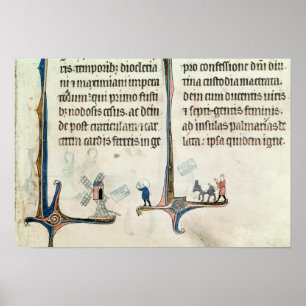 ris. temporib; dioclecia
ni z maximiani impera
torum: qui primo fusti
b; nodosis cesus, ac dein
de post craticulam z car
ferreis inge
pro confessione dñi diu
tina custodia macerata.
dein cum ducentis uiris
z septingentis feminis,
ad insulas palmarias re
lata: ipsa quidem igne